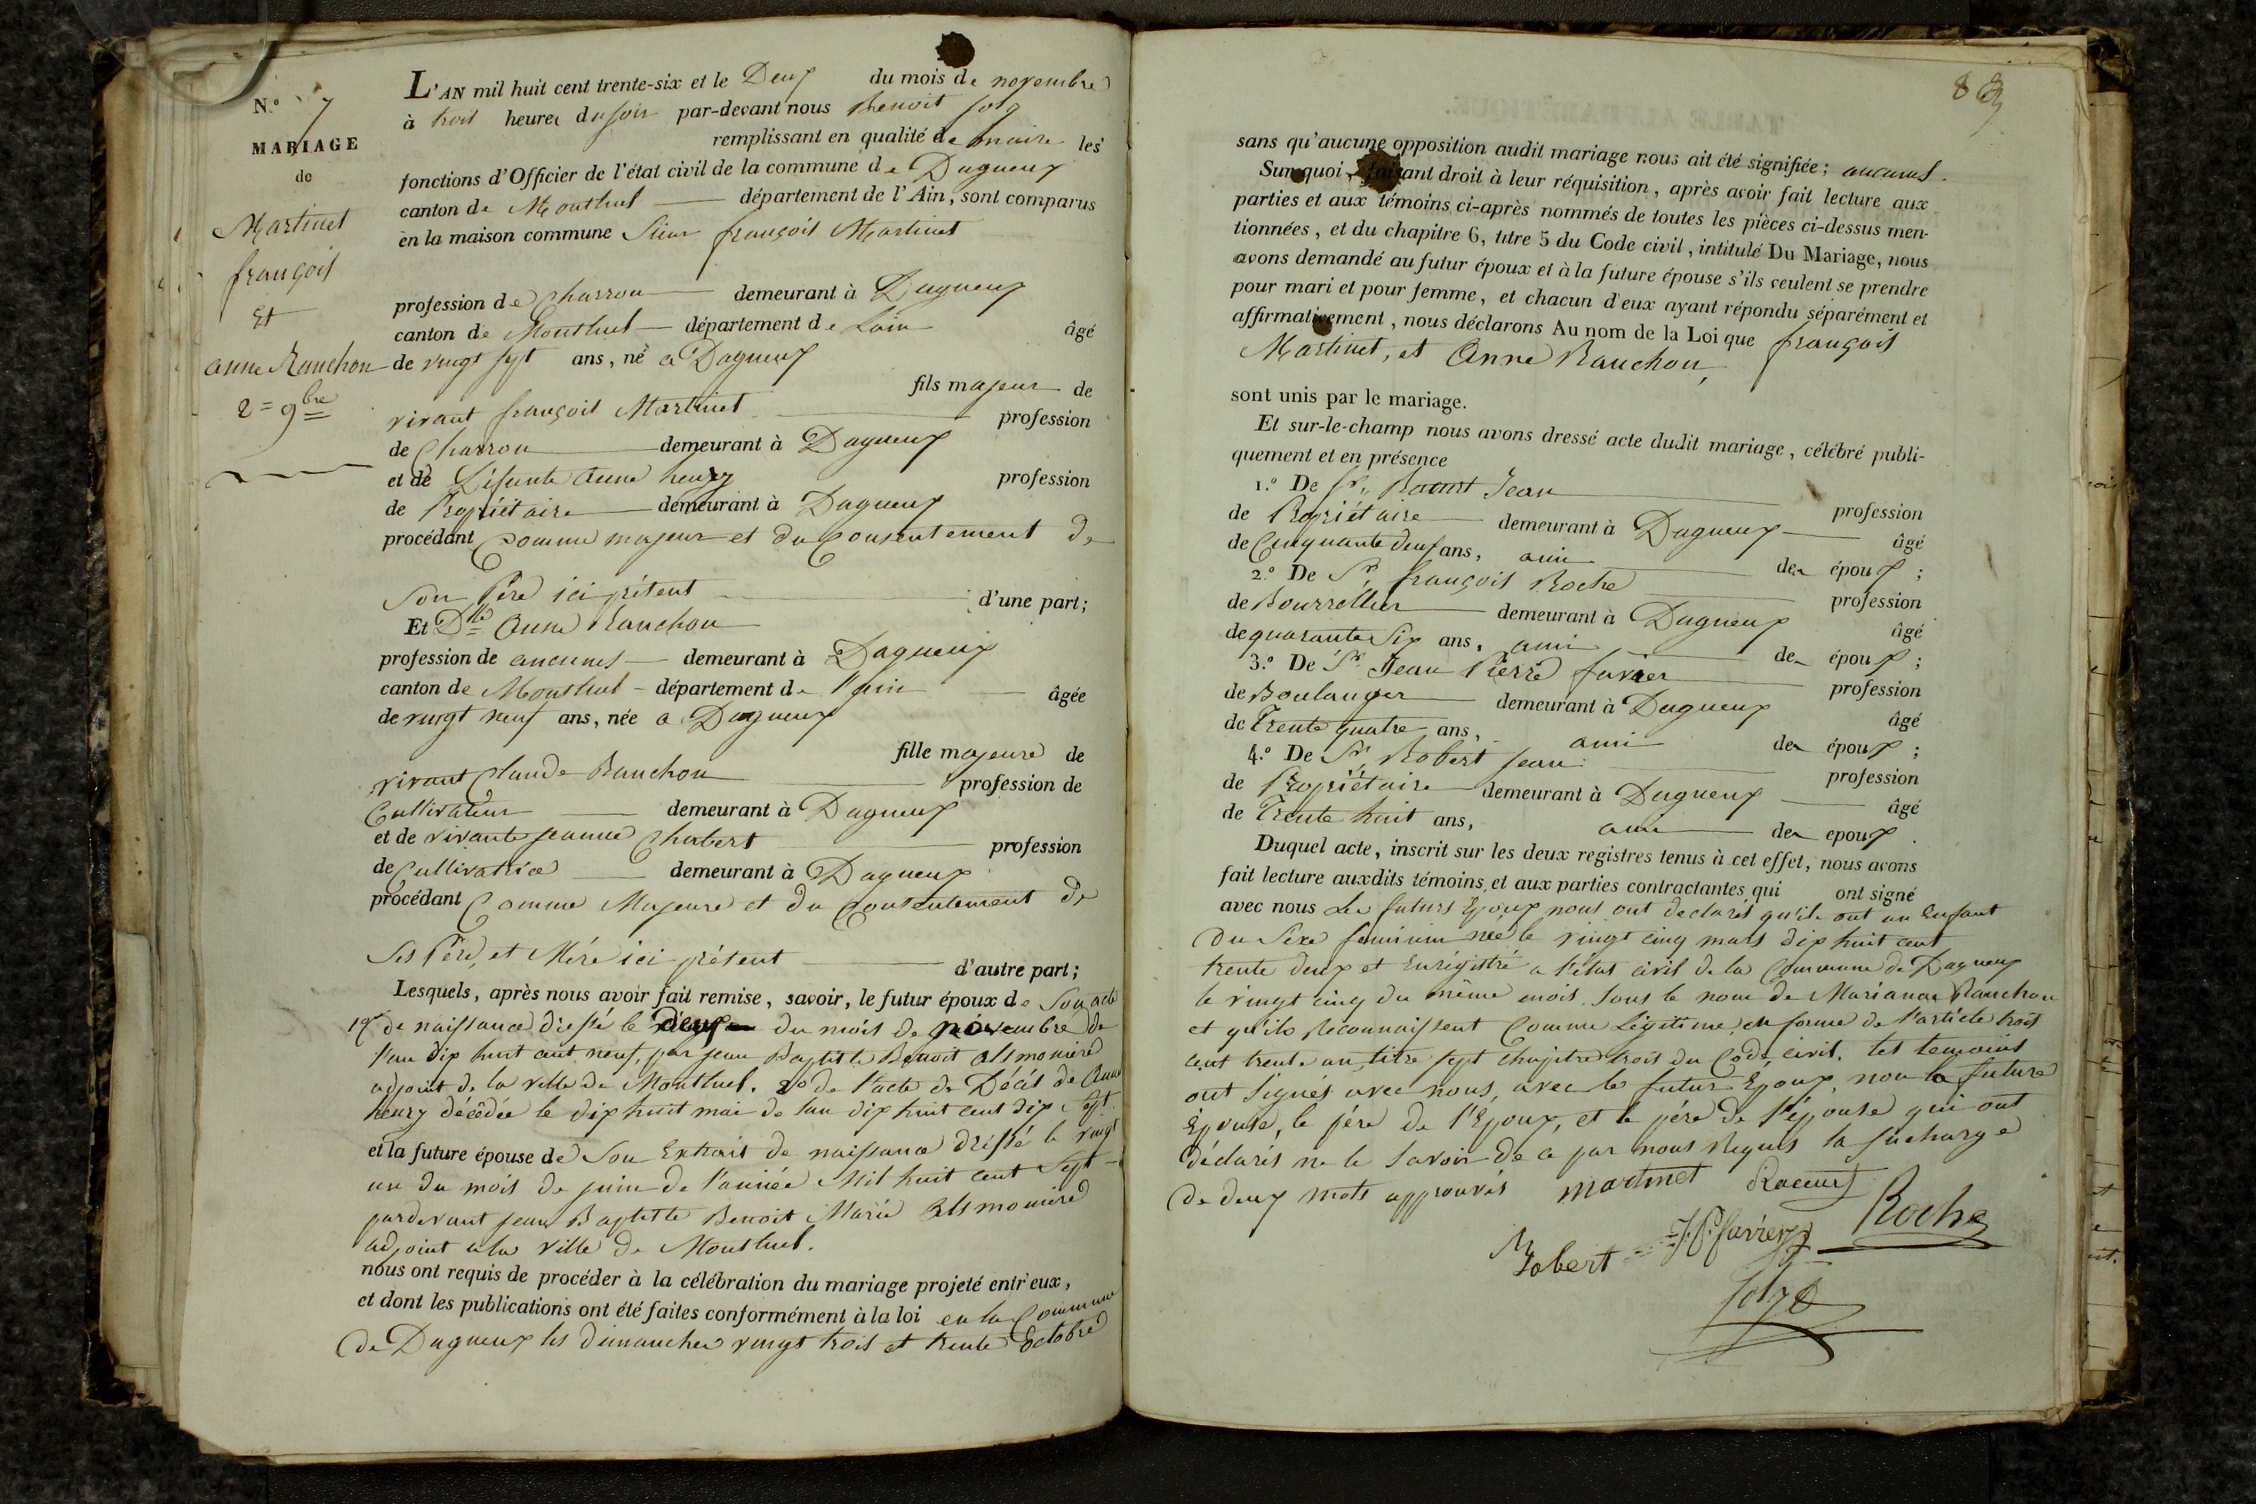 N.º 7
MARIAGE
de
Martinet
françois
Et
anne Ranchon
2 = 9bre
L'AN mil huit cent trente-six et le Deux du mois de novembre
à trois heures du soir par-devant nous Benoit
remplissant en qualité de maire les
fonctions d'Officier de l'état civil de la commune de Dagneux
canton de Montluel département de l'Ain, sont comparus
en la maison commune Sieur françois Martinet
profession de Charron demeurant à Dagneux
canton de Montluel département de Lain âgé
de vingt sept ans, né a Dagneux
fils majeur de
vivant françois Martinet profession
de Charron demeurant à Dagneux
et de Défunte Anne henry profession
de Propriétaire demeurant à Dagneux
procédant Comme majeur et du Consentement de
Son Père ici présent d'une part;
Et Dlle Anne Ranchon
profession de aucunes demeurant à Dagneux
canton de Montluel département de l'ain âgée
de vingt neuf ans, née a Dagneux
fille majeure de
vivant Claude Ranchon profession de
Cultivateur demeurant à Dagneux
et de vivante jeanne Chabert profession
de Cultivatrice demeurant à Dagneux
procédant Comme Majeure et du Consentement de
Ses Père, et Mére ici présent d'autre part;
Lesquels, après nous avoir fait remise, savoir, le futur époux de Son acte
1º de naissance dressé le deux du mois de novembre de
l'an dix huit cent neuf, par jean Baptiste Benoit
adjoint de la ville de Montluel. 2º de l'acte de Décés de Anne
henry décédée le dix huit mai de l'an dix huit cent dix sept
et la future épouse de Son Extrait de naissance dressé le vingt
un du mois de juin de l'année Mil huit cent Sept
pardevant jean Baptiste Benoit Marie
adjoint a la ville de Montluel.
nous ont requis de procéder à la célébration du mariage projeté entr'eux,
et dont les publications ont été faites conformément à la loi en la Commune
de Dagneux les dimanches vingt trois et trente Octobre
sans qu'aucune opposition audit mariage nous ait été signifiée; aucunes.
Sur quoi, faisant droit à leur réquisition, après avoir fait lecture aux
parties et aux témoins ci-après nommés de toutes les pièces ci-dessus men-
tionnées, et du chapitre 6, titre 5 du Code civil, intitulé Du Mariage, nous
avons demandé au futur époux et à la future épouse s'ils veulent se prendre
pour mari et pour femme, et chacun d'eux ayant répondu séparément et
affirmativement, nous déclarons Au nom de la Loi que françois
Martinet, et Anne Ranchon,
sont unis par le mariage.
Et sur-le-champ nous avons dressé acte dudit mariage, célébré publi-
quement et en présence
1.º De Sr. Jean profession
de Propriétaire demeurant à Dagneux âgé
de Cinquante deux ans, ami des époux;
2.º De Sr. françois Roche profession
de Bourrellier demeurant à Dagneux âgé
de quarante Six ans, ami des époux;
3.º De Sr. Jean Pierre favier profession
de Boulanger demeurant à Dagneux âgé
de Trente quatre ans, ami des époux;
4.º De Sr. Robert jean profession
de Propriétaire demeurant à Dagneux âgé
de Trente huit ans, ami des epoux.
Duquel acte, inscrit sur les deux registres tenus à cet effet, nous avons
fait lecture auxdits témoins, et aux parties contractantes, qui ont signé
avec nous Les futurs Epoux nous ont declarés qu'ils ont un Enfant
du Sexe feminin née le vingt cinq mars dix huit cent
trente deux et Enrégistré a l'état civil de la Commune de Dagneux
le vingt cinq du même mois. Sous le nom de Marianne Ranchon
et qu'ils Reconnaissent Comme Légitime, en forme de l'article trois
cent trente un, titre sept chapitre trois du Code civil. les temoins
ont signés avec nous, avec le futur Epoux, non la future
Epouse, le pére de l'Epoux, et le pére de l'épouse qui ont
déclarés ne le Savoir de ce par nous Requis la surcharge
de deux mots approuvés martinet
Roche
J. P. favier
Robert